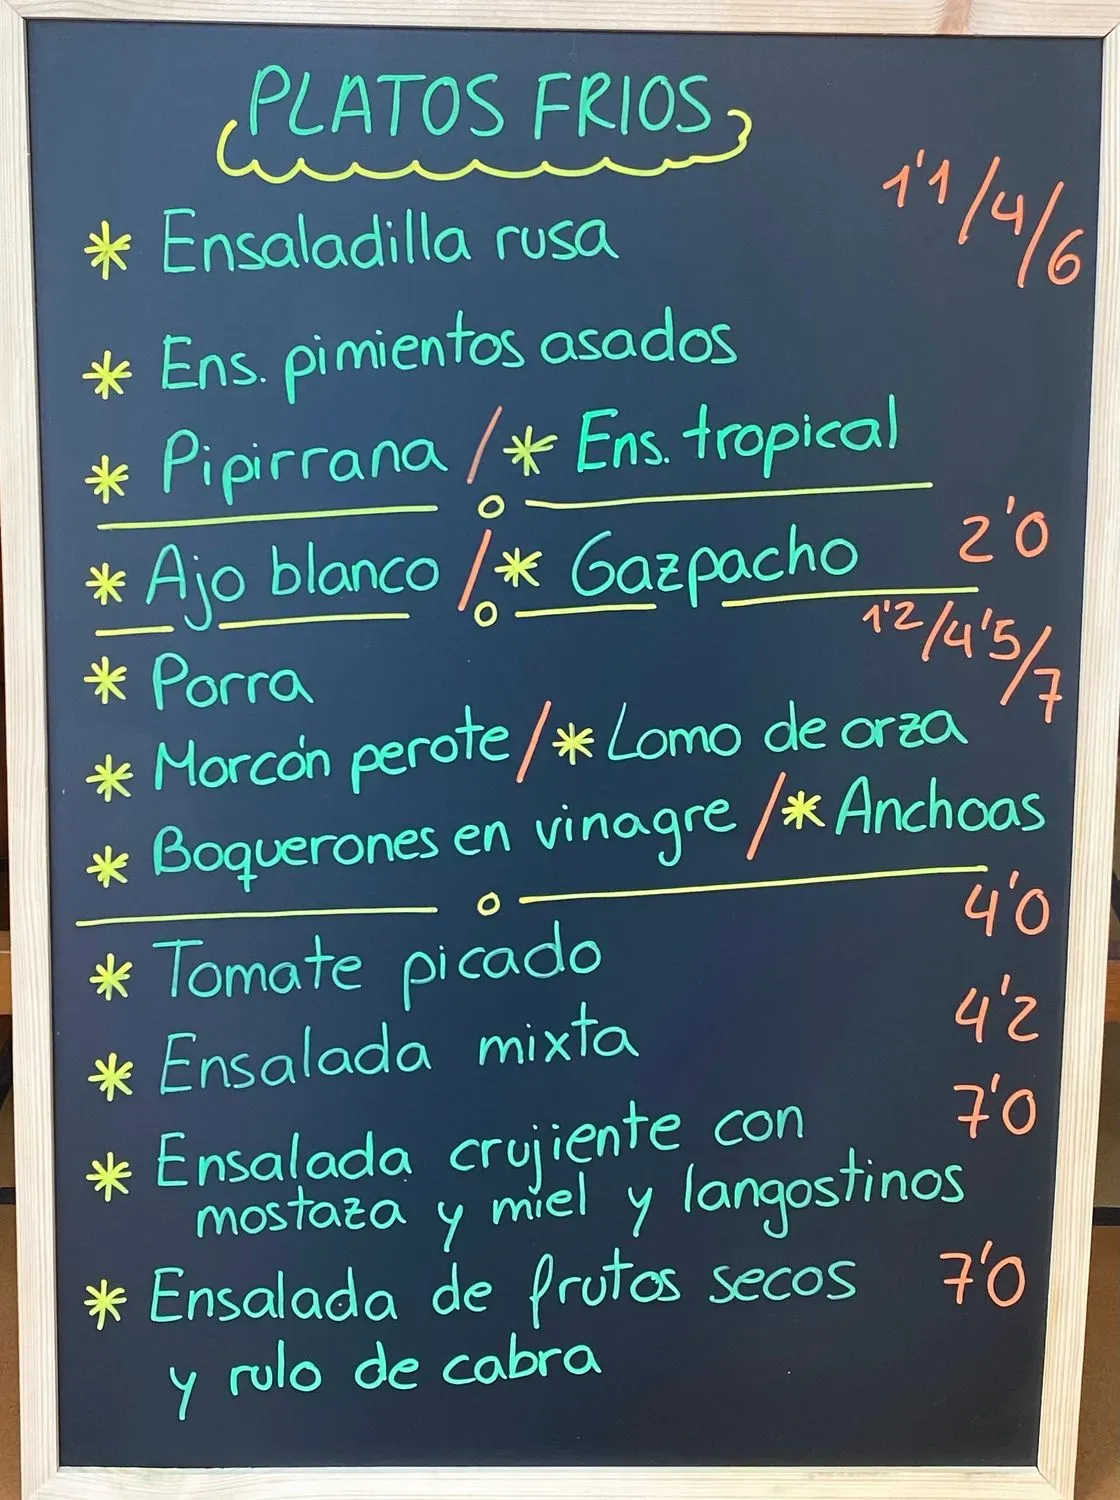 PLATOS FRIOS
* Ensaladilla rusa 1'1/4/6
* Ens. pimientos asados
* Pipirrana / * Ens. tropical
* Ajo blanco / * Gazpacho 2'0
* Porra 1'2/4'5/7
* Morcón perote / * Lomo de orza
* Boquerones en vinagre / * Anchoas
* Tomate picado 4'0
* Ensalada mixta 4'2
* Ensalada crujiente con 7'0
mostaza y miel y langostinos
* Ensalada de frutos secos 7'0
y rulo de cabra